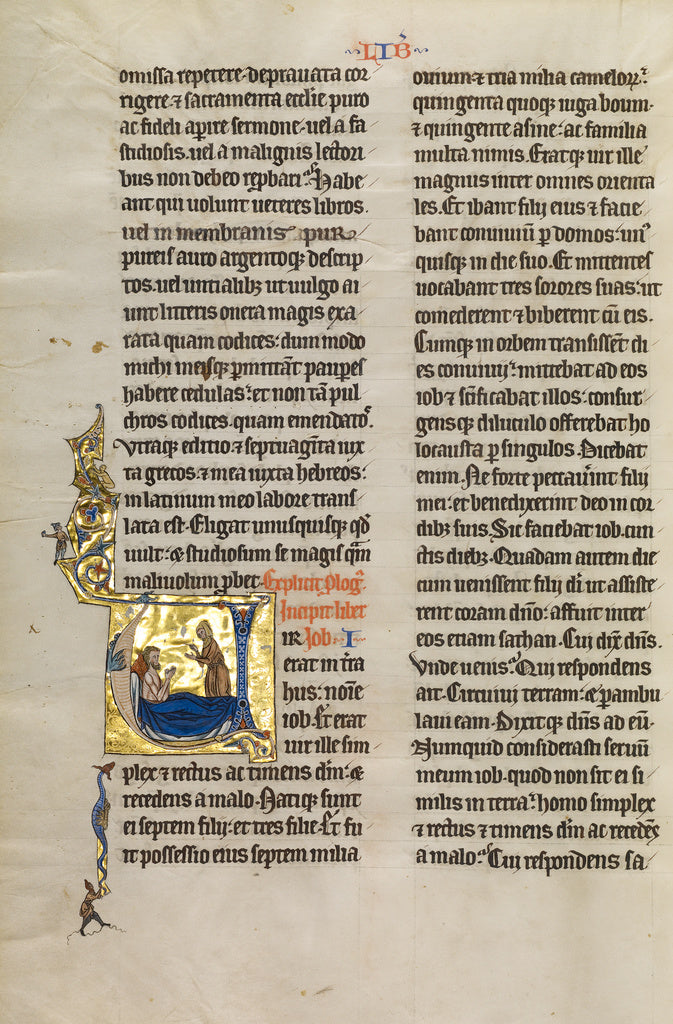 LIB
omissa repetere. deprauata cor
rigere. ⁊ sacramenta ecclie puro
ac fideli apire sermone. uel a fa
stidiosis. uel a malignis lectori
bus non debeo repbari. Habe
ant qui uolunt ueteres libros.
uel in membranis pur
pureis auro argentoq; descrip
tos. uel uncialib; ut uulgo ai
unt litteris onera magis exa
rata quam codices: dum modo
michi meisq; pmittāt paupes
habere cedulas: et non tā pul
chros codices. quam emendatos.
Vtraq; editio. ⁊ septuagīta iux
ta grecos. ⁊ mea iuxta hebreos:
in latinum meo labore trans
lata est. Eligat unusquisq; qd
uult: ⁊ studiosum se magis qm
maliuolum pbet. Explicit plog.
Incipit liber
IR Iob. I
erat in tra
hus: noīe
iob. Et erat
uir ille sim
plex ⁊ rectus ac timens dm: ⁊
recedens a malo. Natiq; sunt
ei septem filij. et tres filie. Et fu
it possessio eius septem milia
ouium. ⁊ tria milia camelor:
quingenta quoq; iuga boum.
⁊ quingente asine. ac familia
multa nimis. Eratq; uir ille
magnus inter omnes orienta
les. Et ibant filij eius ⁊ facie
bant conuiuiū p domos: un
quisq; in die suo. Et mittentes
uocabant tres sorores suas: ut
comederent ⁊ biberent cū eis.
Cumq; in orbem transissent di
es conuiuij: mittebat ad eos
iob ⁊ scificabat illos: consur
gensq; diluculo offerebat ho
locausta p singulos. Dicebat
enim. Ne forte peccauint filij
mei: et benedixerint deo in cor
dib; suis. Sic faciebat iob. cun
ctis dieb;. Quadam autem die
cum uenissent filij di ut assiste
rent coram dno: affuit inter
eos etiam sathan. Cui dix dns.
Vnde uenis. Qui respondens
ait. Circuiui terram: ⁊ pambu
laui eam. Dixitq; dns ad eū.
Numquid considerasti seruū
meum iob. quod non sit ei si
milis in terra: homo simplex
⁊ rectus ⁊ timens dm ac recedēs
a malo. Cui respondens sa